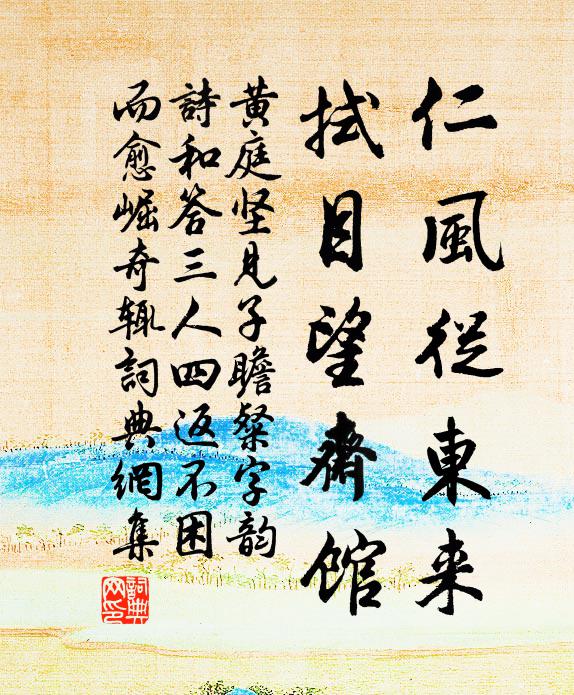 仁風從東来
拭目望齋館
黄庭坚見子瞻粲字韵
詩和答三人四返不困
而愈崛奇辄詞典網集
詞典网印